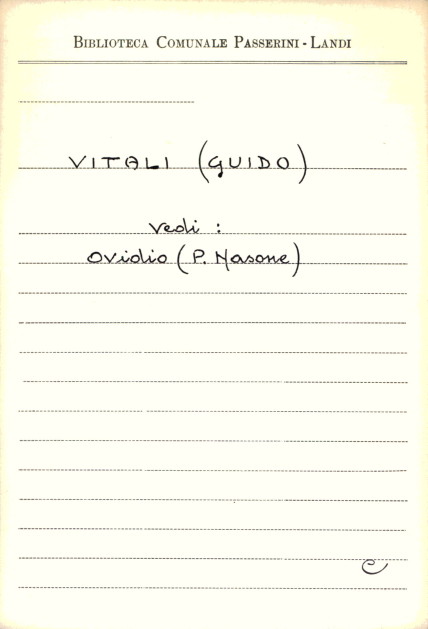 BIBLIOTECA COMUNALE PASSERINI - LANDI
VITALI (GUIDO)
Vedi :
Ovidio (P. Nasone)
C